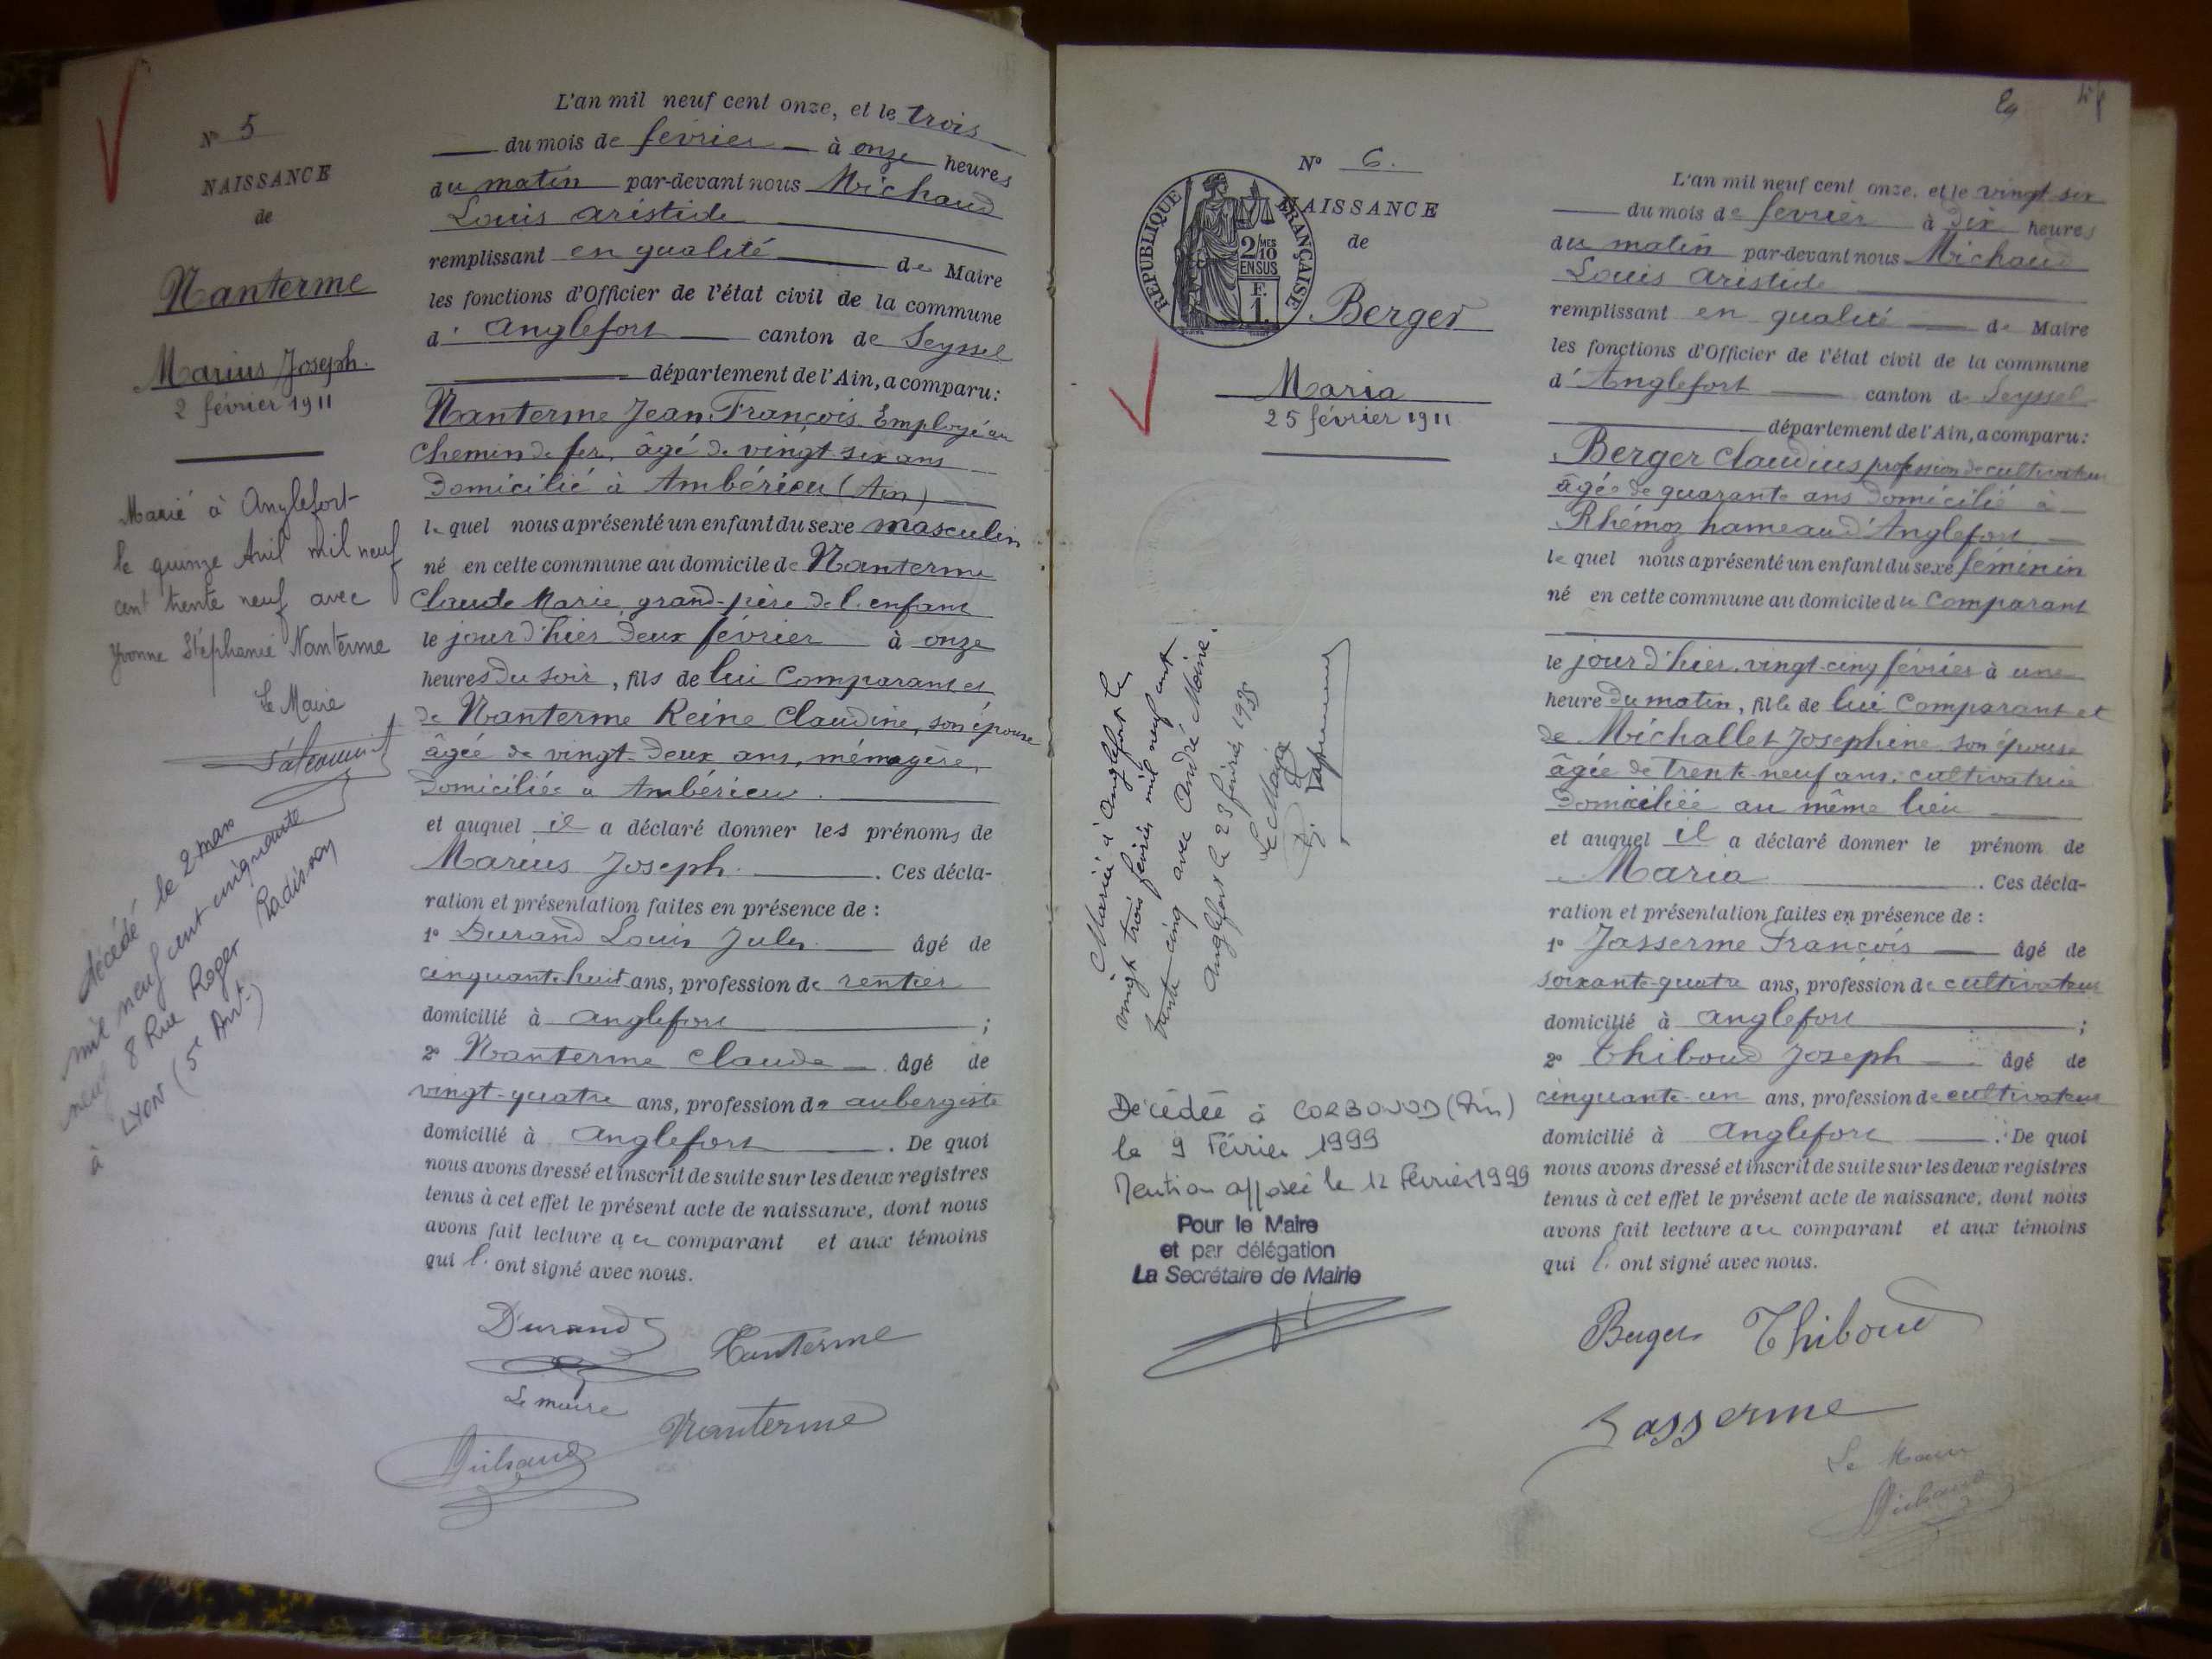 N° 5
NAISSANCE
de
Nanterme
Marius Joseph.
2 février 1911
Marié à Anglefort
le quinze Avril mil neuf
cent trente neuf avec
Yvonne Stéphanie Nanterme
Le Maire
Décédé le 2 mars
mil neuf cent cinquante
neuf 8 Rue Roger Radisson
à LYON (5e Art.)
L'an mil neuf cent onze, et le trois
du mois de février à onze heures
du matin par-devant nous Michaud
Louis Aristide
remplissant en qualité de Maire
les fonctions d'Officier de l'état civil de la commune
d' Anglefort canton de Seyssel
département de l'Ain, a comparu :
Nanterme Jean François. Employé au
Chemin de fer, âgé de vingt-six ans
Domicilié à Ambérieu (Ain)
lequel nous a présenté un enfant du sexe masculin
né en cette commune au domicile de Nanterme
Claude Marie, grand-père de l'enfant
le jour d'hier deux février à onze
heures du soir, fils de lui Comparant et
de Nanterme Reine Claudine, son épouse
âgée de vingt-deux ans, ménagère,
Domiciliée à Ambérieu.
et auquel il a déclaré donner les prénoms de
Marius Joseph. Ces décla-
ration et présentation faites en présence de :
1° Durand Louis Jules âgé de
cinquante-huit ans, profession de rentier
domicilié à Anglefort ;
2° Nanterme Claude âgé de
vingt-quatre ans, profession de aubergiste
domicilié à Anglefort. De quoi
nous avons dressé et inscrit de suite sur les deux registres
tenus à cet effet le présent acte de naissance, dont nous
avons fait lecture au comparant et aux témoins
qui l' ont signé avec nous.
Durand Nanterme
Le maire
Michaud Nanterme
N° 6.
NAISSANCE
de
RÉPUBLIQUE FRANÇAISE
2/10 MES
EN SUS
F.
1.
Berger
Maria
25 février 1911
Mariée à Anglefort le
vingt trois février mil neuf cent
trente cinq avec André Moine.
Anglefort le 23 février 1935
Le Maire
Décédée à CORBONOD (Ain)
le 9 Février 1999
Mention apposée le 12 Février 1999
Pour le Maire
et par délégation
La Secrétaire de Mairie
L'an mil neuf cent onze, et le vingt-six
du mois de février à dix heures
du matin par-devant nous Michaud
Louis Aristide
remplissant en qualité de Maire
les fonctions d'Officier de l'état civil de la commune
d' Anglefort canton de Seyssel
département de l'Ain, a comparu :
Berger Claudius profession de cultivateur
âgée de quarante ans Domicilié à
Rhémoz hameau d'Anglefort
lequel nous a présenté un enfant du sexe féminin
né en cette commune au domicile du Comparant
le jour d'hier, vingt-cinq février à une
heure du matin, fille de lui Comparant et
de Michallet Josephine son épouse
âgée de trente-neuf ans, cultivatrice
Domiciliée au même lieu
et auquel il a déclaré donner le prénom de
Maria. Ces décla-
ration et présentation faites en présence de :
1° Jasserme François âgé de
soixante-quatre ans, profession de cultivateur
domicilié à Anglefort ;
2° Thiboud Joseph âgé de
cinquante-un ans, profession de cultivateur
domicilié à Anglefort. De quoi
nous avons dressé et inscrit de suite sur les deux registres
tenus à cet effet le présent acte de naissance, dont nous
avons fait lecture au comparant et aux témoins
qui l' ont signé avec nous.
Berger Thiboud
Jasserme
Le Maire
Michaud